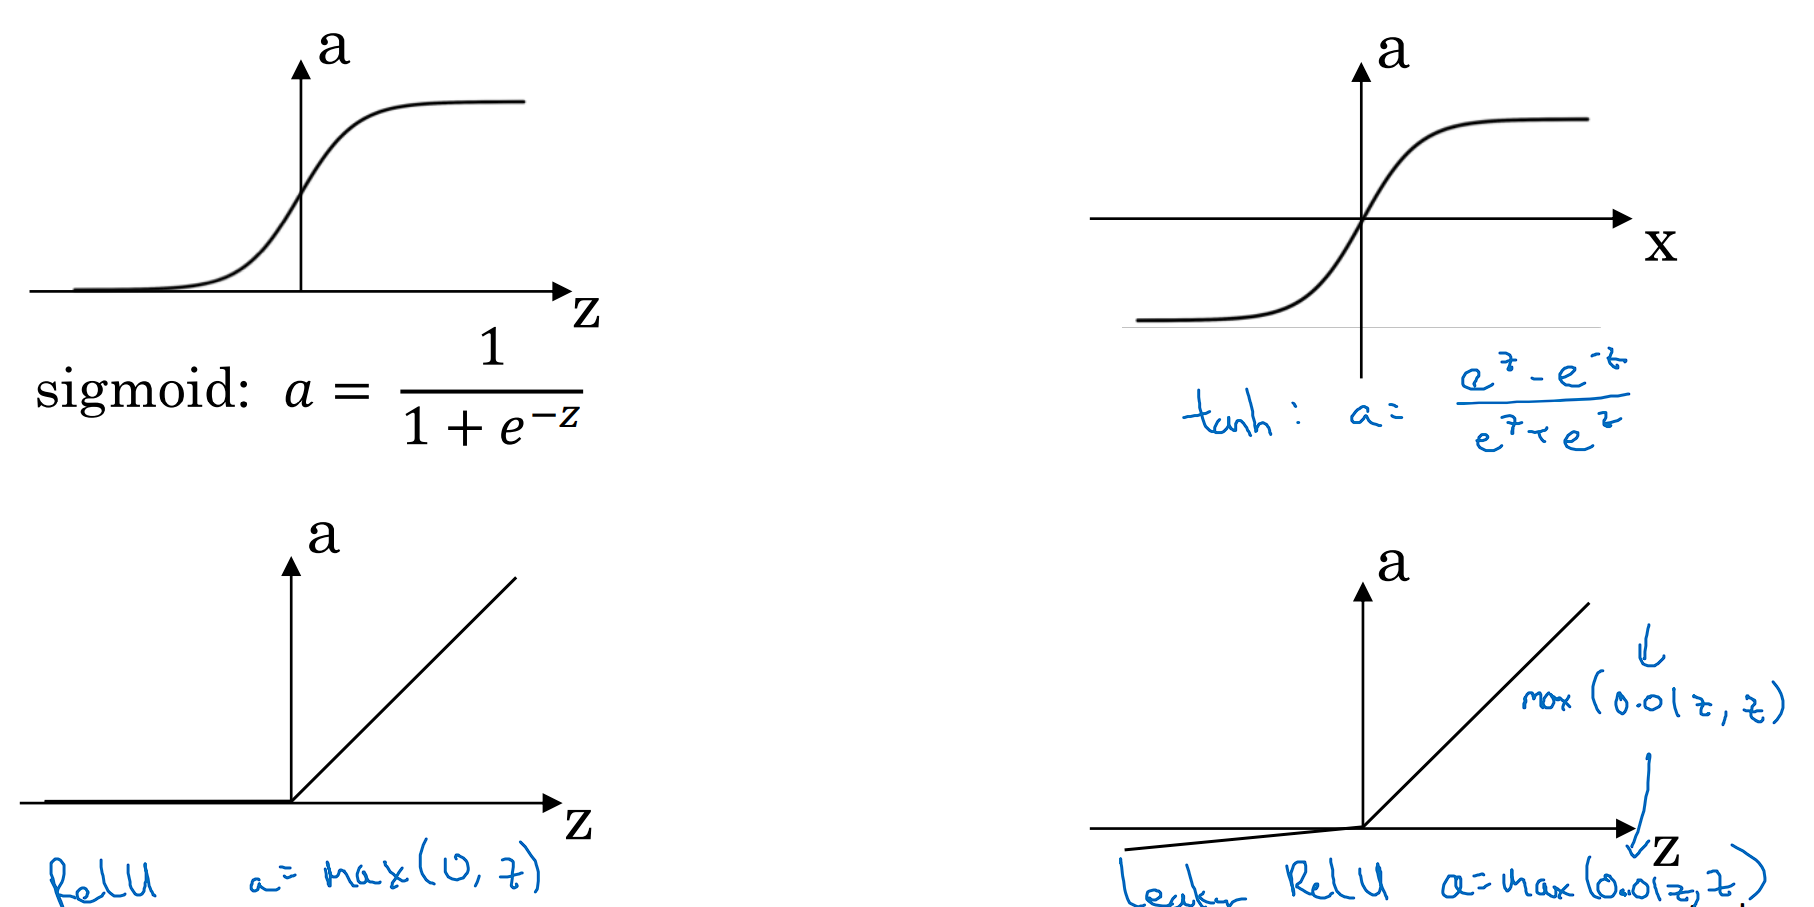 a
z
sigmoid: a = 1 / (1 + e^{-z})
a
x
tanh: a = (e^z - e^{-z}) / (e^z + e^z)
a
z
ReLU a = max(0, z)
a
max(0.01z, z)
z
Leaky ReLU a = max(0.01z, z)